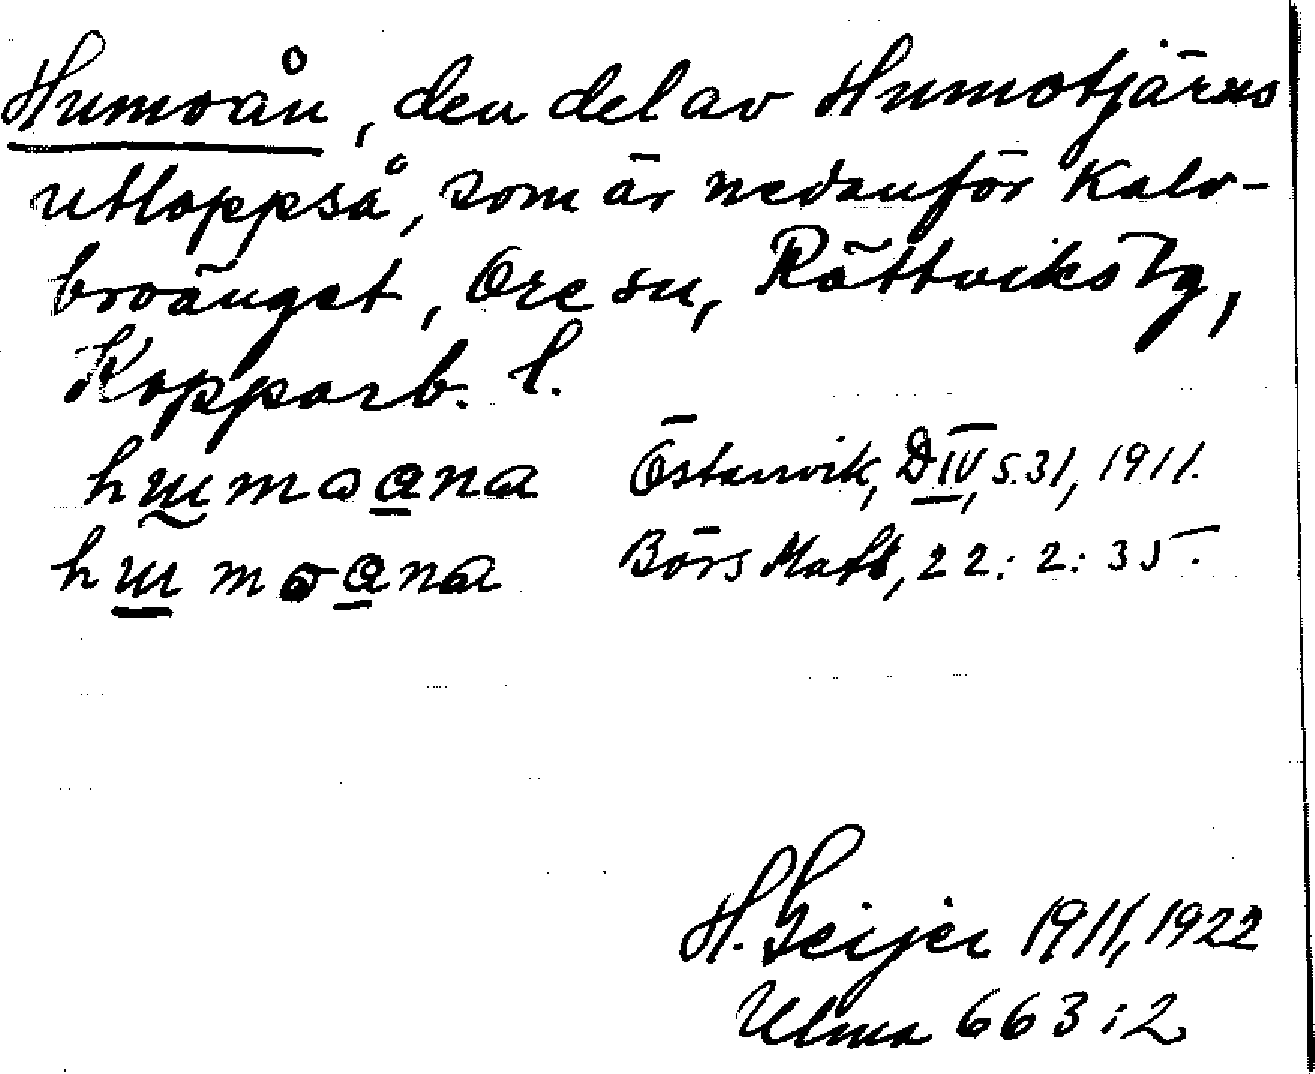 Humoån, den del av Humotjärns
utloppså, som är nedanför Kalv-
broänget, Ore sn, Rättviks tg,
Kopparb. l.
Östanvik, D IV, s. 31, 1911.
Börs Matt, 22: 2: 35.
H. Geijer 1911, 1922
Ulma 663:2